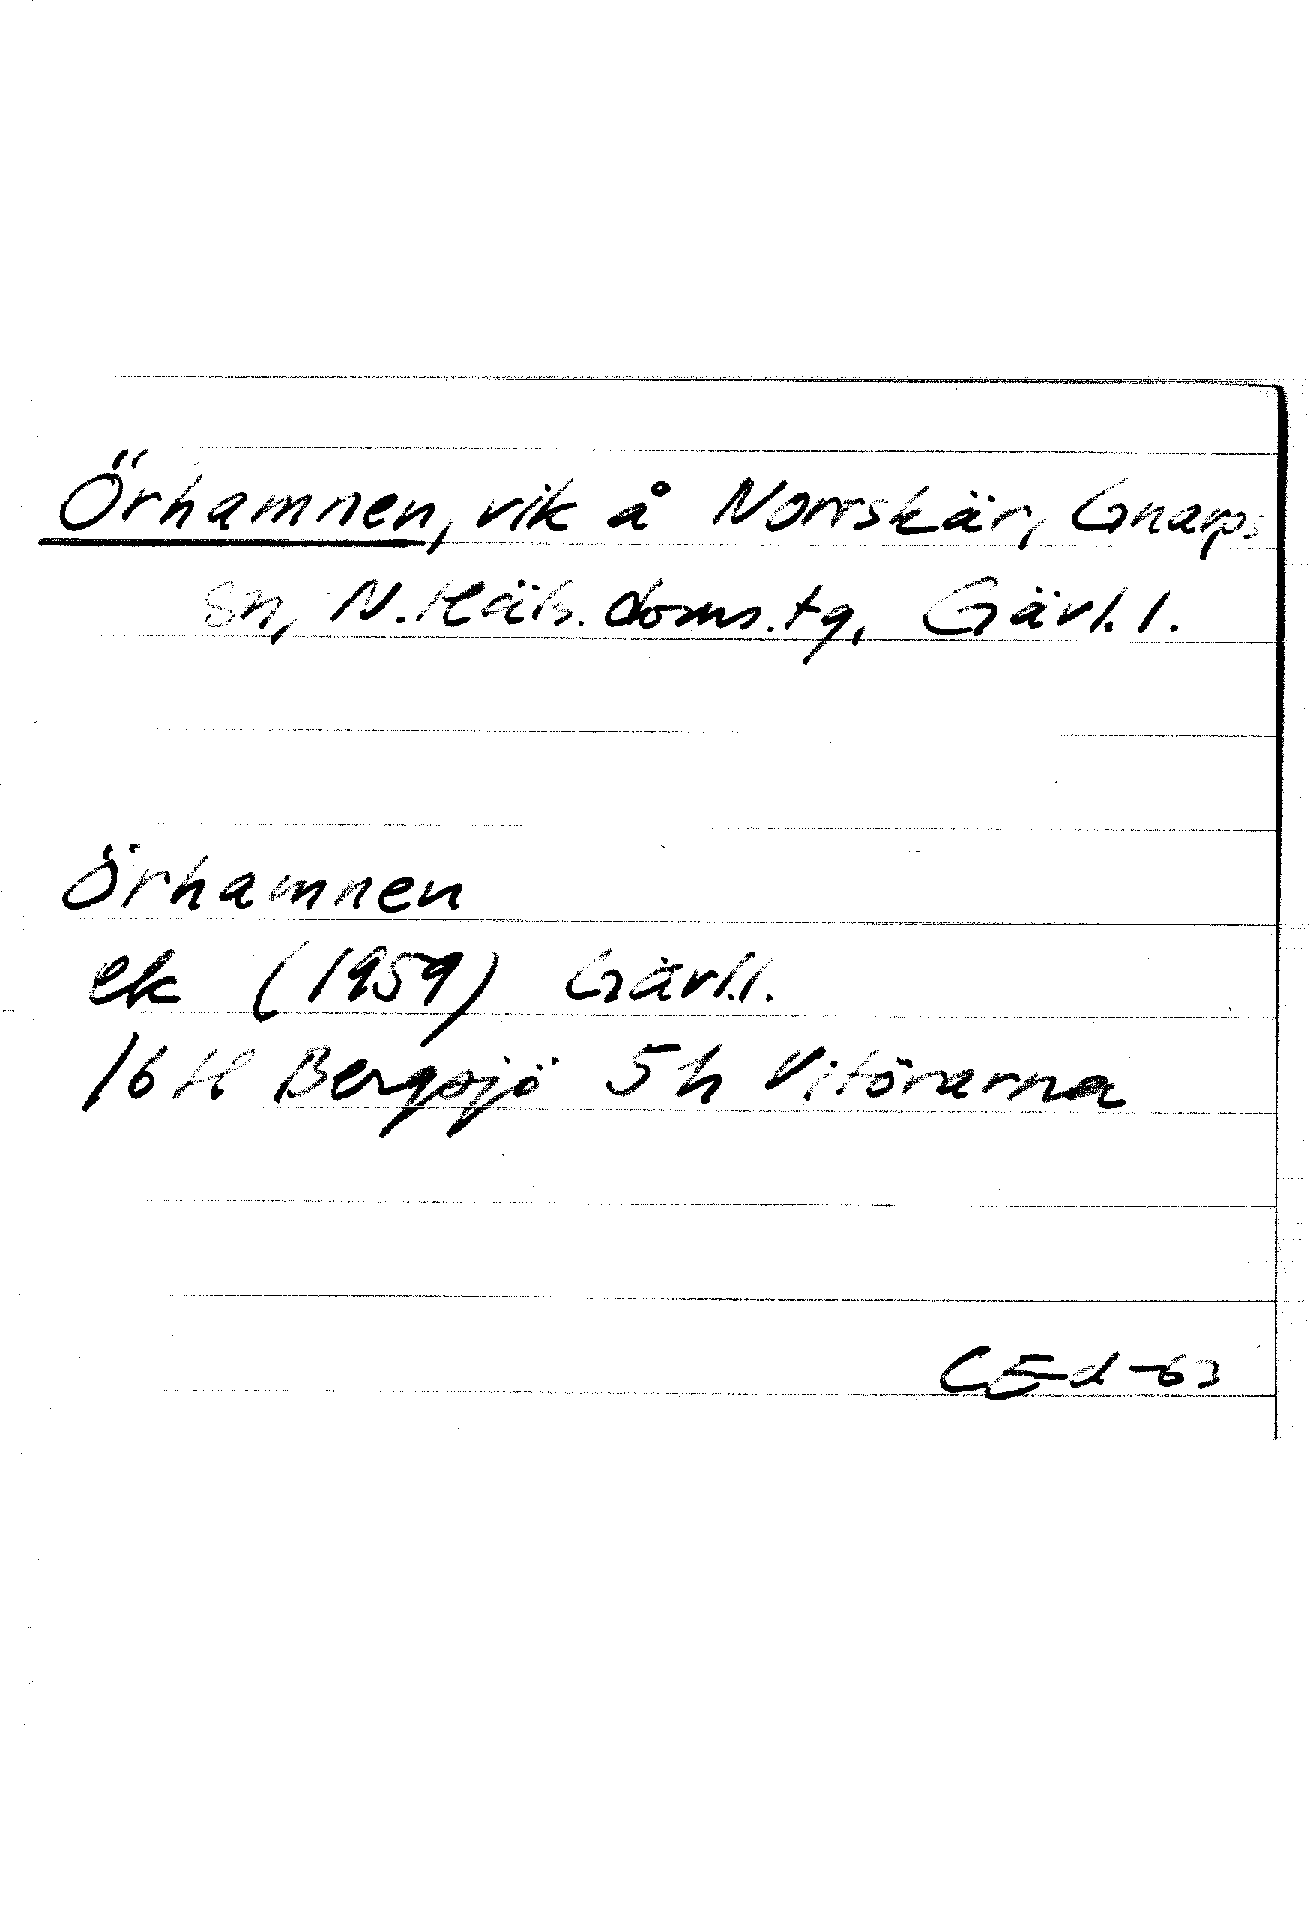 Örhamnen, vik å Norrskär, Gnarps
sn, N. Häls. doms. tg, Gävl. l.
Örhamnen
ek (1959) Gävl.l.
16 H Bergsjö 5h Vitörarna
CEd -63